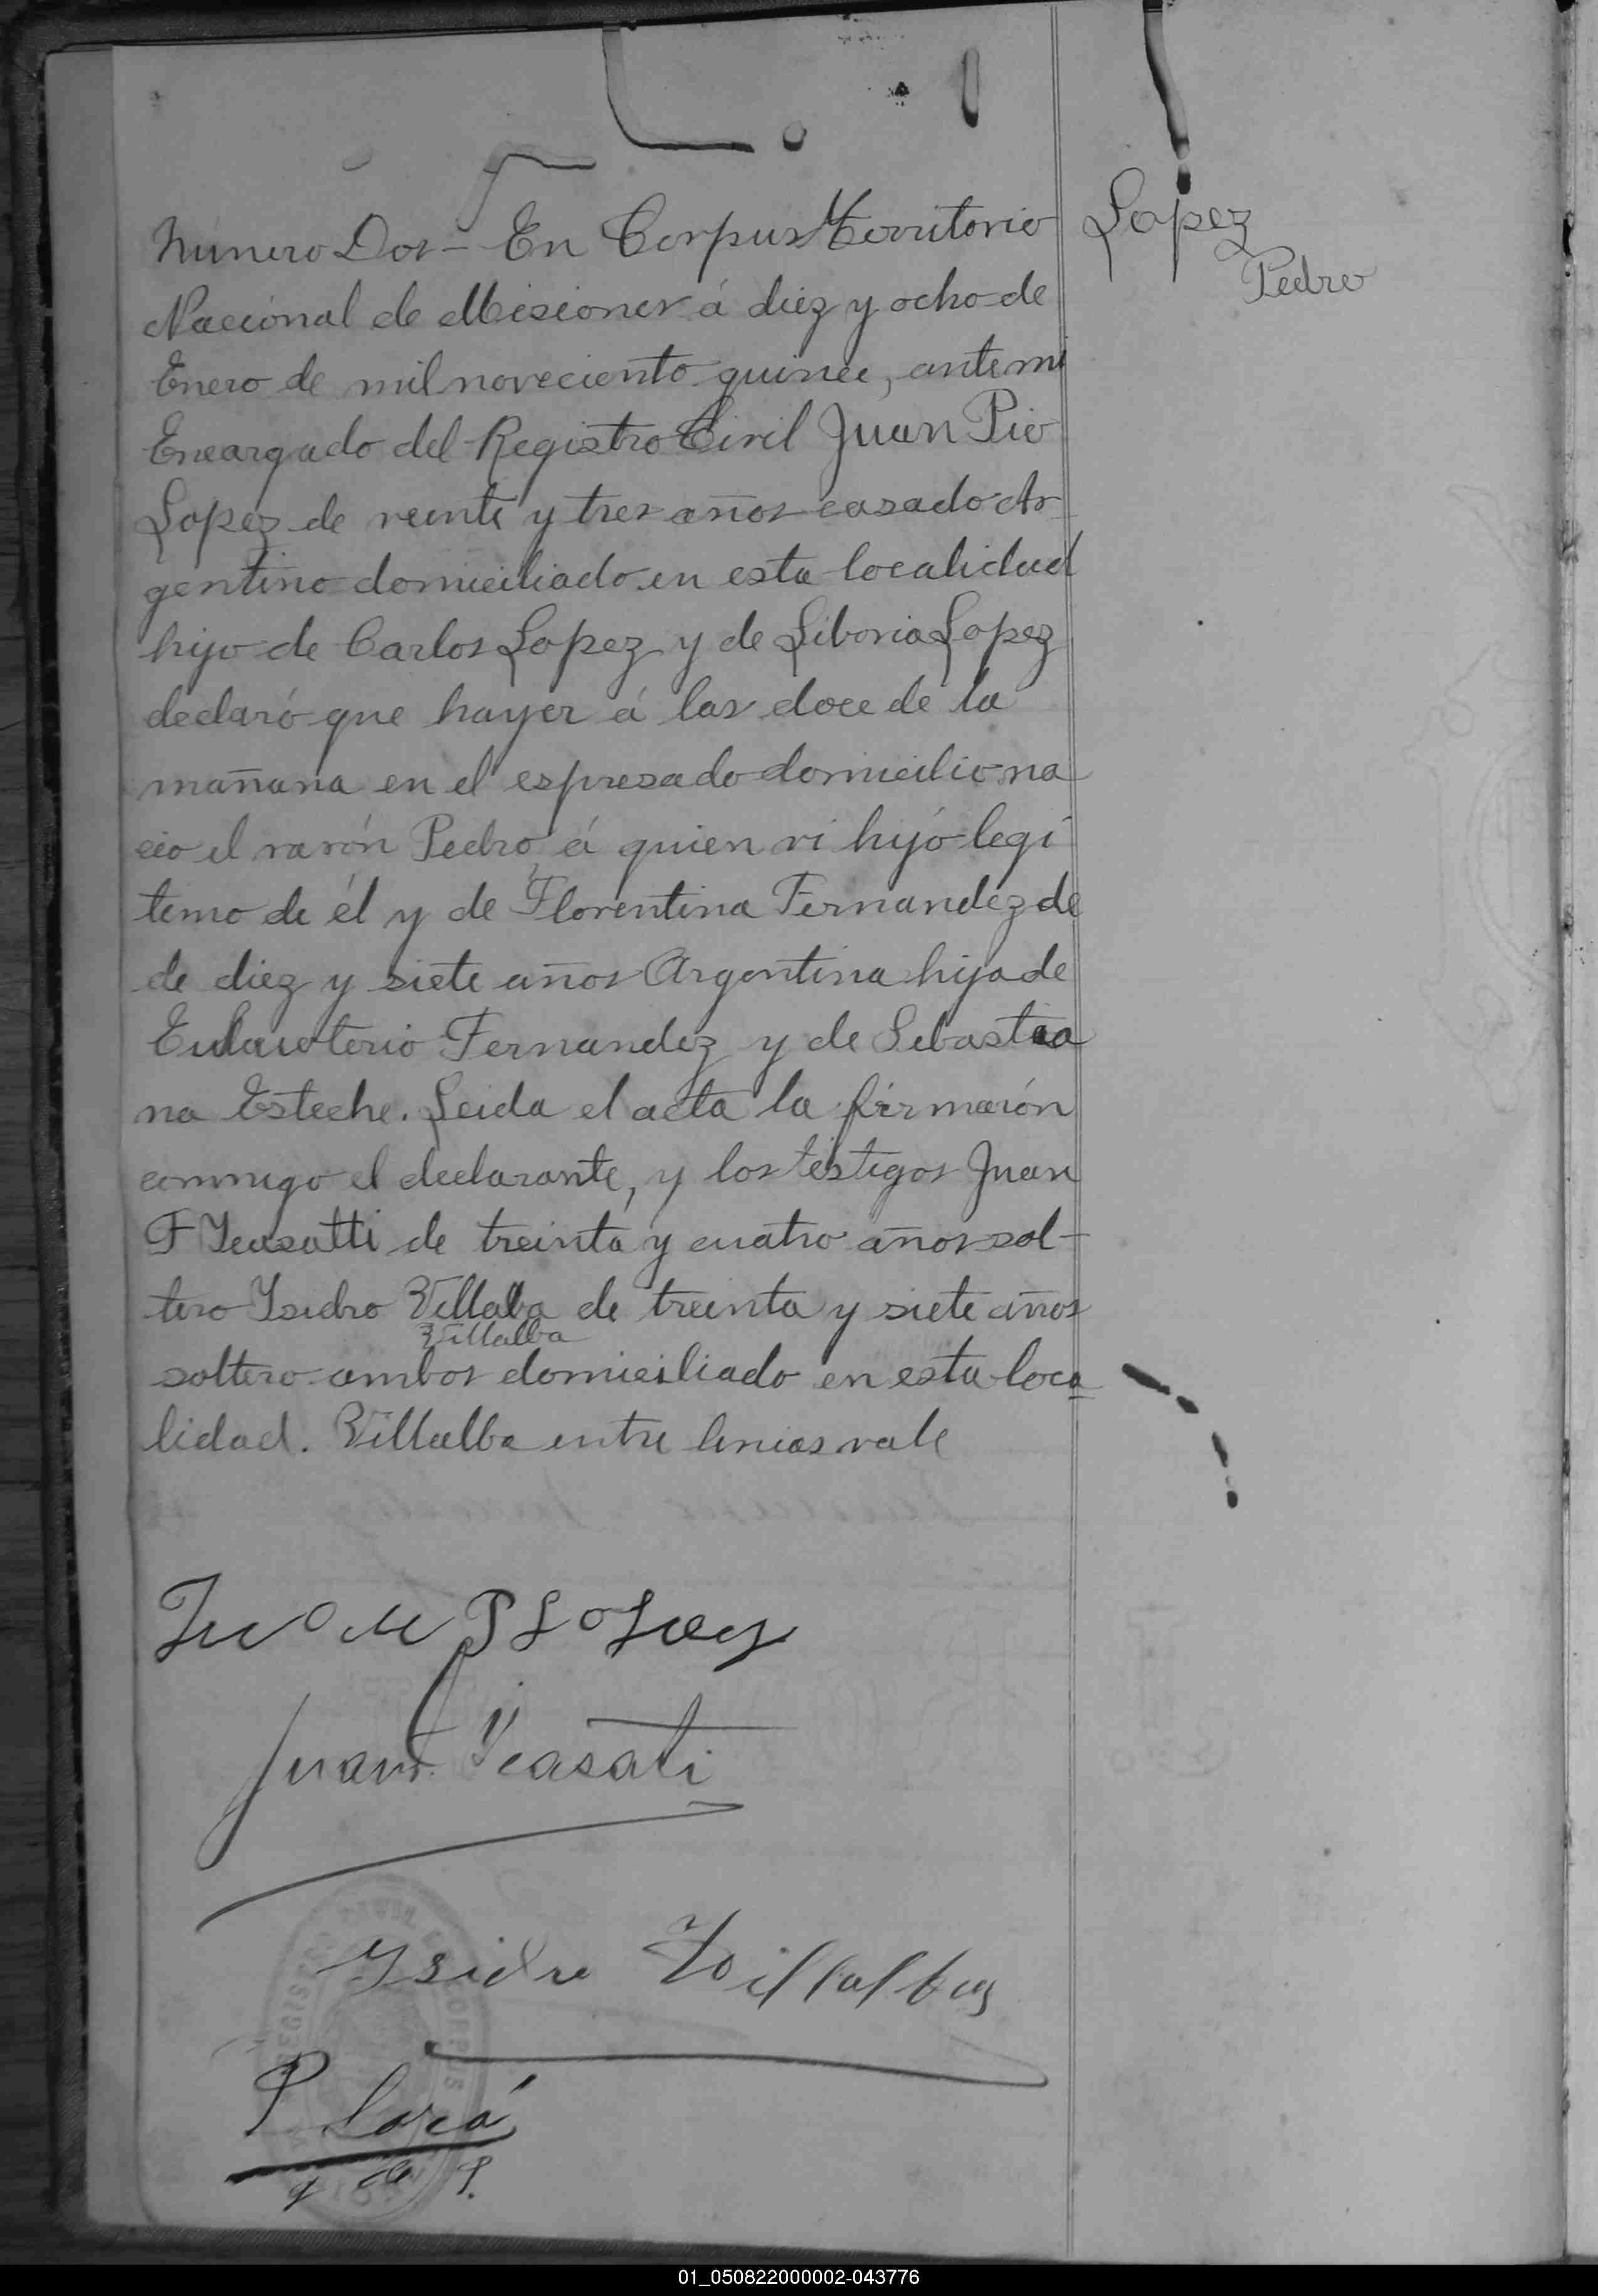 Número Dos - En Corpus Territorio
Nacional de Misiones á diez y ocho de
Enero de mil noveciento quince, ante mi
Encargado del Registro Civil Juan Pio
Lopez de veinte y tres años casado Ar-
gentino domiciliado en esta localidad
hijo de Carlos Lopez y de Liboria Lopez
declaró que hayer á las doce de la
mañana en el espresado domicilio na
cio el varón Pedro á quien vi hijo legi
timo de él y de Florentina Fernandez de
de diez y siete años Argentina hija de
Fernandez y de Sebastia
na Esteche. Leida el acta la firmarón
conmigo el declarante, y los testigos Juan
F Ycasatti de treinta y cuatro años sol-
tero Ysidro Villalba de treinta y siete años
Villalba
soltero ambos domiciliado en esta loca
lidad. Villalba entre linias vale
Lopez
Pedro
Juan P Lopez
Juan F. Ycasati
Ysidro Villalba
P
REGISTRO
CORPUS
01_050822000002-043776